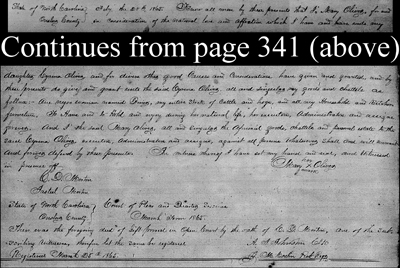 State of North Carolina, July the 20th 1865. Know all men by these presents that I, Mary Oliver for and
Onslow County in consideration of the natural love and affection which I have and bear unto my
Continues from page 341 (above)
daughter Cyrena Oliver and for divers other good Causes and Consideration have given and granted, and by
these presents do give, and grant unto the said Cyrena Oliver all and singular my goods and chattels as
follows. One negro woman my entire Stock of Cattle and hogs, and all my Household and kitchen
furniture. To Have and to Hold and enjoy during her natural life, her executors Administrators and assigns
forever. And I the said Mary Oliver, all and singular the aforesaid goods, chattels and personal estate to the
said Cyrena Oliver executors, Administrators and assigns, against all persons whatsoever shall and will warrant
and forever defend by these presents. In witness thereof I have set my hand and seal, and Witnessed
in presence of
Mary Oliver
her mark
E. D. Morton
Morton
State of North Carolina } Court of Pleas and Quarter Session
Onslow County } March Term 1865.
Then was the foregoing deed of Gift proved in Open Court by the oath of E. D. Morton, one of the
witnesses, therefore let the same be registered
Registered March 25th 1865.